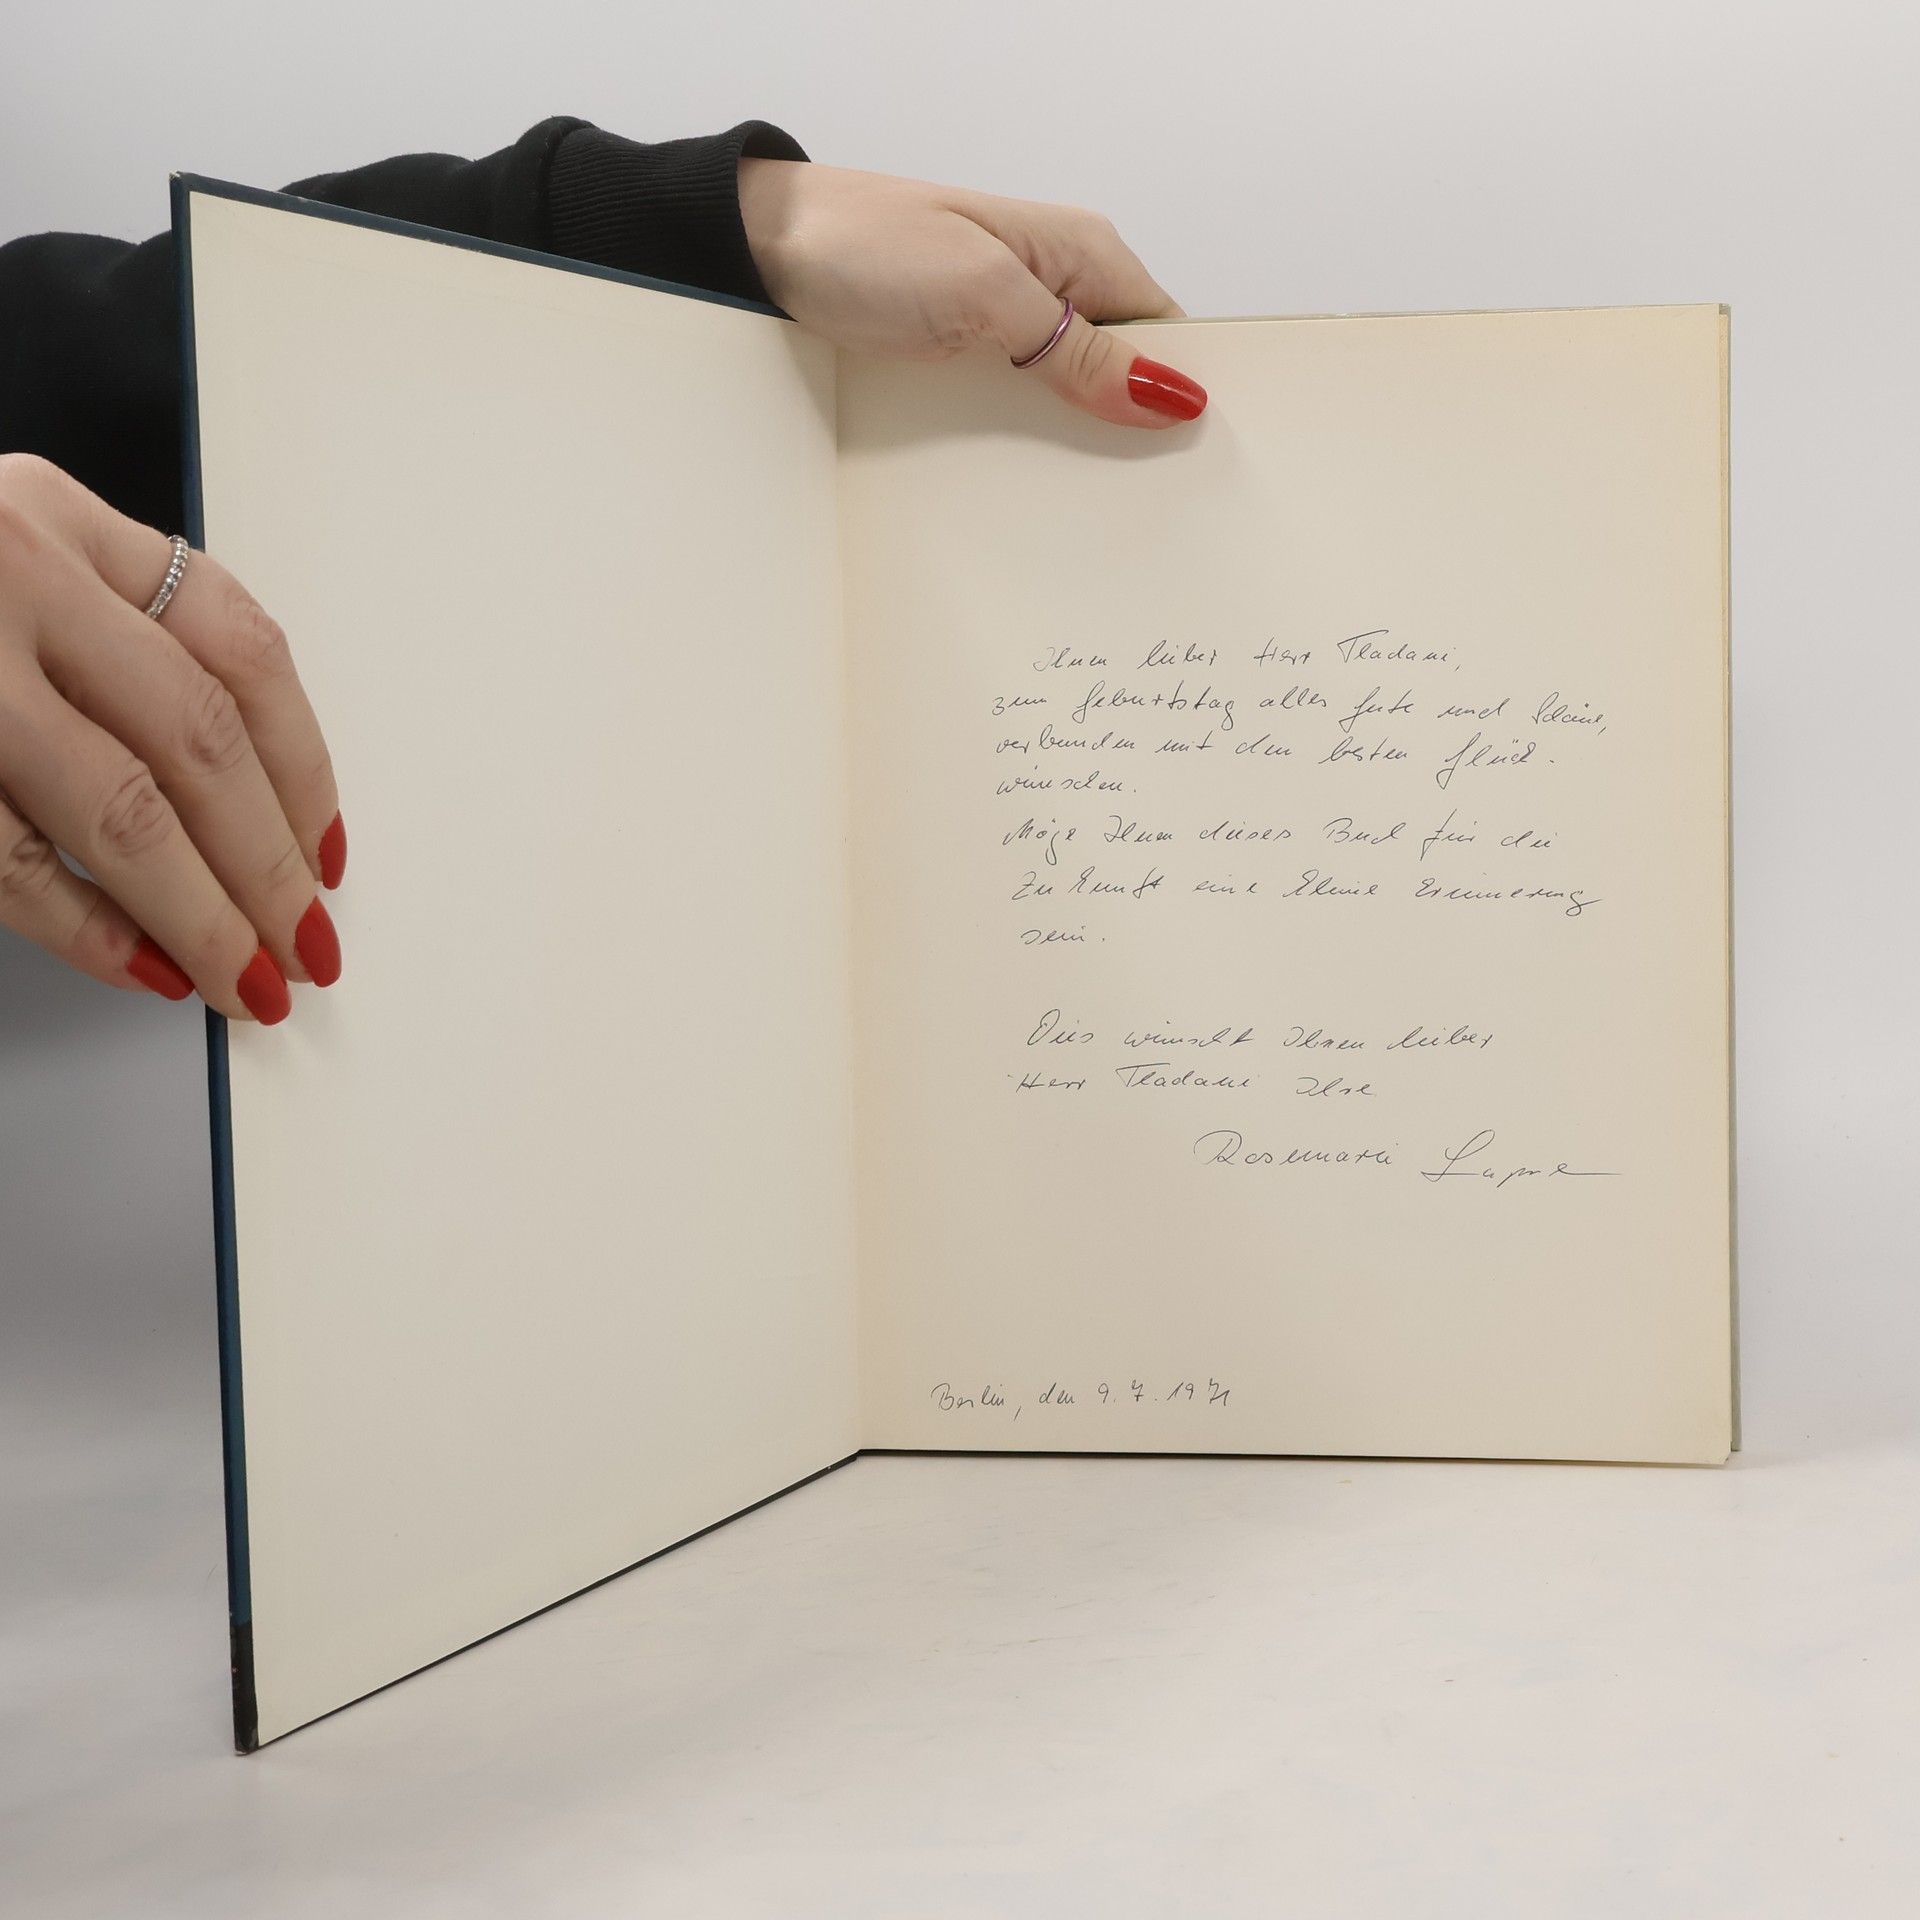 Ihnen lieber Herr Tladani,
zum Geburtstag alles Gute und Schöne,
verbunden mit den besten Glück-
wünschen.
Möge Ihnen dieses Buch für die
Zukunft eine kleine Erinnerung
sein.
Dies wünscht Ihnen lieber
Herr Tladani Ihre
Rosemarie
Berlin, den 9.7.1971